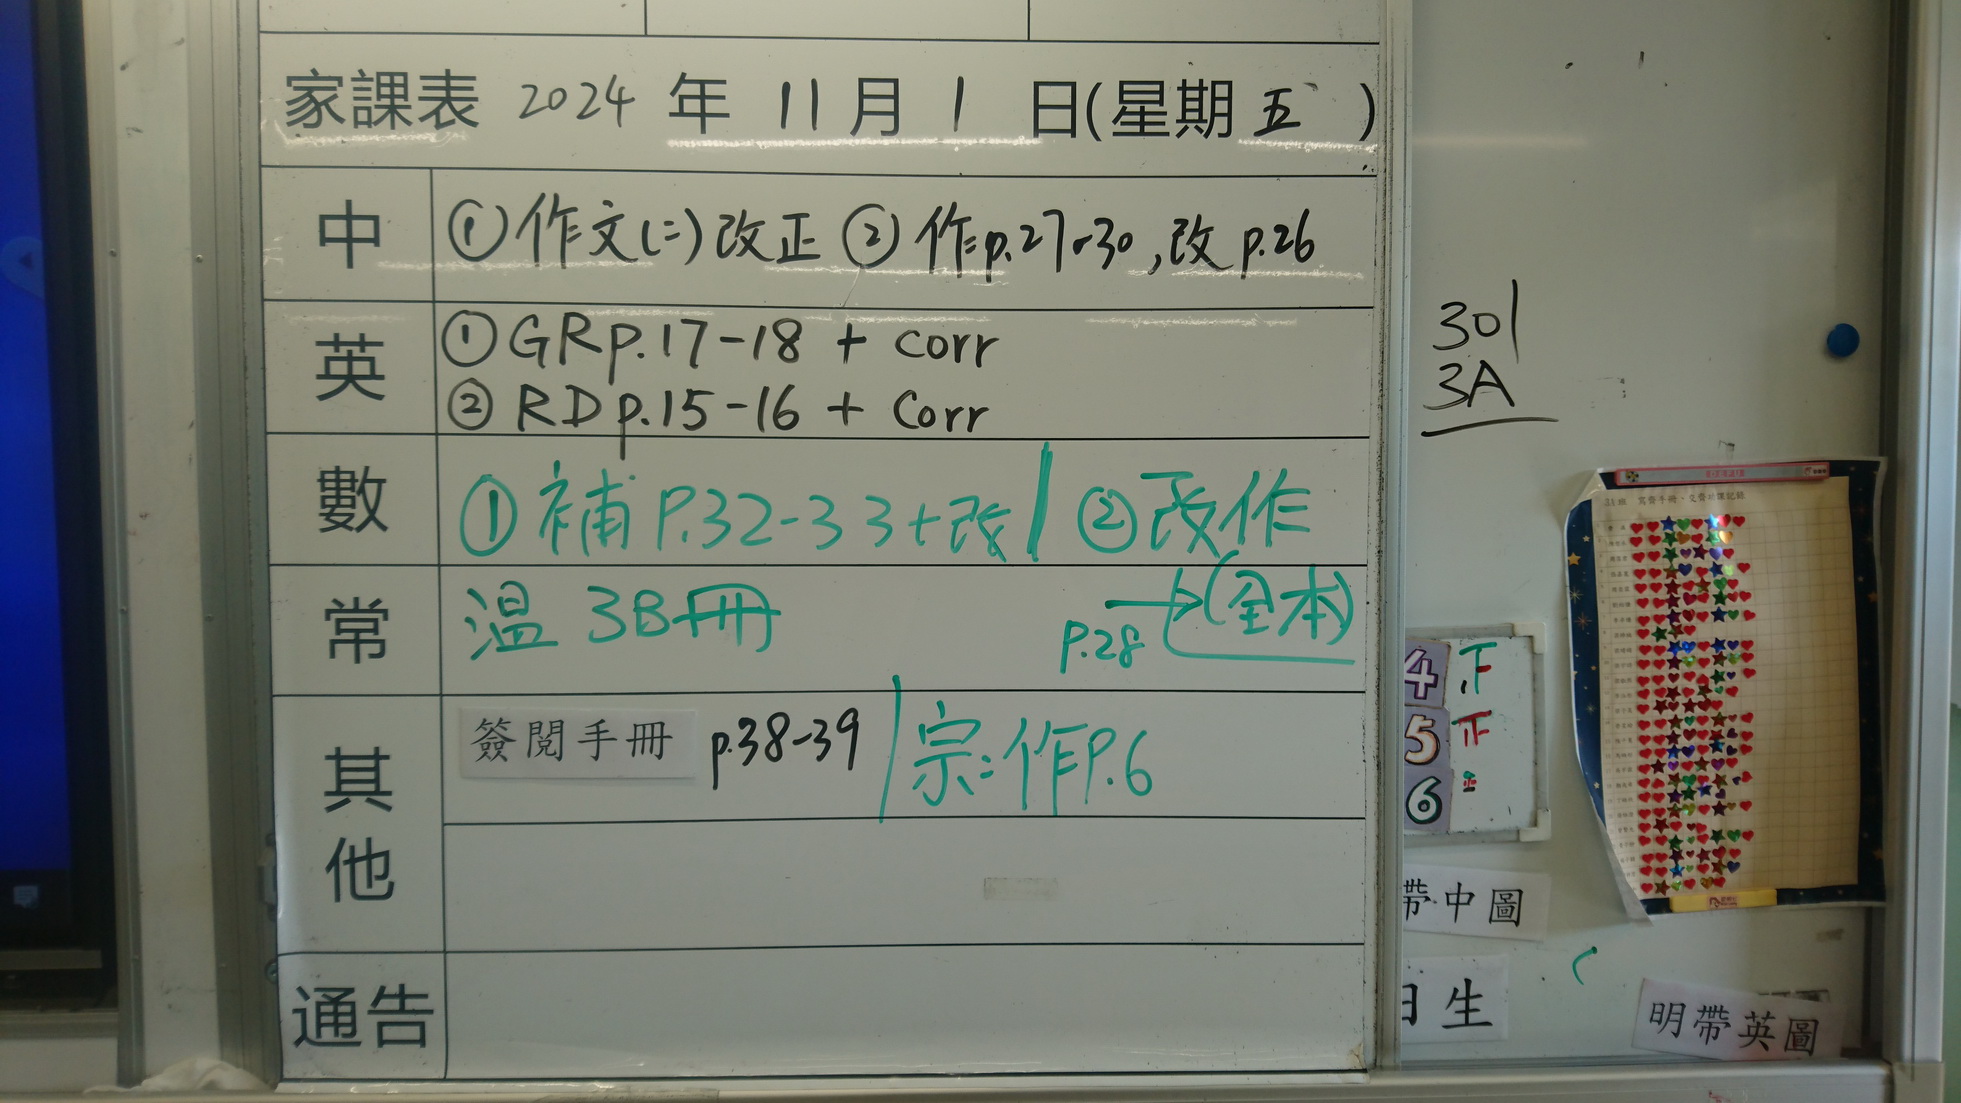 家課表 2024 年 11 月 1 日(星期 五 )
中 ①作文(二)改正 ②作p.27-30,改 p.26
英 ①GR p.17-18 + corr
②RD p.15-16 + Corr
數 ①補P.32-33+改 ②改作
(全本)
p.28
常 溫 3B冊
其他 簽閱手冊 p.38-39 宗:作P.6
通告
301
3A
4 正
5 正
6
帶中圖
日生
明帶英圖